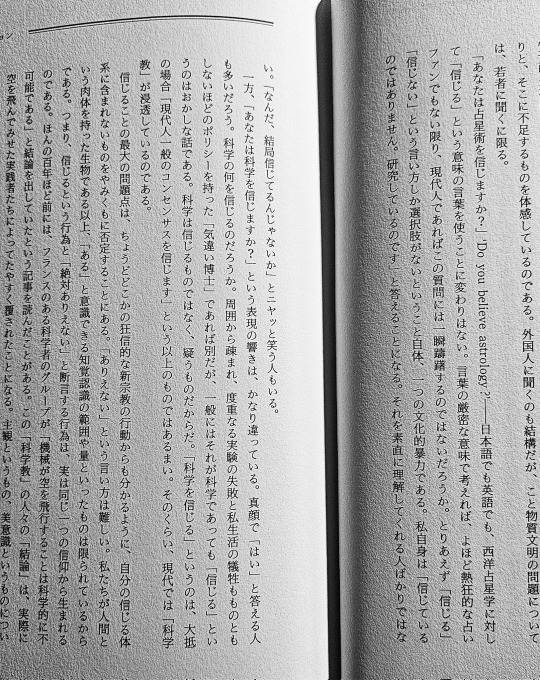 りと、そこに不足するものを体感しているのである。外国人に聞くのも結構だが、こと物質文明の問題について
は、若者に聞くに限る。
「あなたは占星術を信じますか？」'Do you believe astrology?'――日本語でも英語でも、西洋占星学に対し
て「信じる」という意味の言葉を使うことに変わりはない。言葉の厳密な意味で考えれば、よほど熱狂的な占い
ファンでもない限り、現代人であればこの質問には一瞬躊躇するのではないだろうか。とりあえず「信じる」
「信じない」という言い方しか選択肢がないということ自体、一つの文化的暴力である。私自身は「信じている
のではありません。研究しているのです」と答えることになる。それを素直に理解してくれる人ばかりではな
い。「なんだ、結局信じてるんじゃないか」とニヤッと笑う人もいる。
一方、「あなたは科学を信じますか？」という表現の響きは、かなり違っている。真顔で「はい」と答える人
も多いだろう。科学の何を信じるのだろうか。周囲から疎まれ、度重なる実験の失敗と私生活の犠牲をものとも
しないほどのポリシーを持った「気違い博士」であれば別だが、一般にはそれが科学であっても「信じる」とい
うのはおかしな話である。科学は信じるものではなく、疑うものだからだ。「科学を信じる」というのは、大抵
の場合「現代人一般のコンセンサスを信じます」という以上のものではあるまい。そのくらい、現代では「科学
教」が浸透しているのである。
信じることの最大の問題点は、ちょうどどこかの狂信的な新宗教の行動からも分かるように、自分の信じる体
系に含まれないものをやみくもに否定することにある。「ありえない」という言い方は難しい。私たちが人間と
いう肉体を持った生物である以上、「ある」と意識できる知覚認識の範囲や量といったものは限られているから
である。つまり、信じるという行為と「絶対ありえない」と断言する行為は、実は同じ一つの信仰から生まれる
のである。ほんの百年ほど前には、フランスのある科学者のグループが「機械が空を飛行することは科学的に不
可能である」と結論を出していたという記事を読んだことがある。この「科学教」の人々の「結論」は、実際に
空を飛んでみせた実践者たちによってたやすく覆されたことになる。主観というもの、美意識というものについ